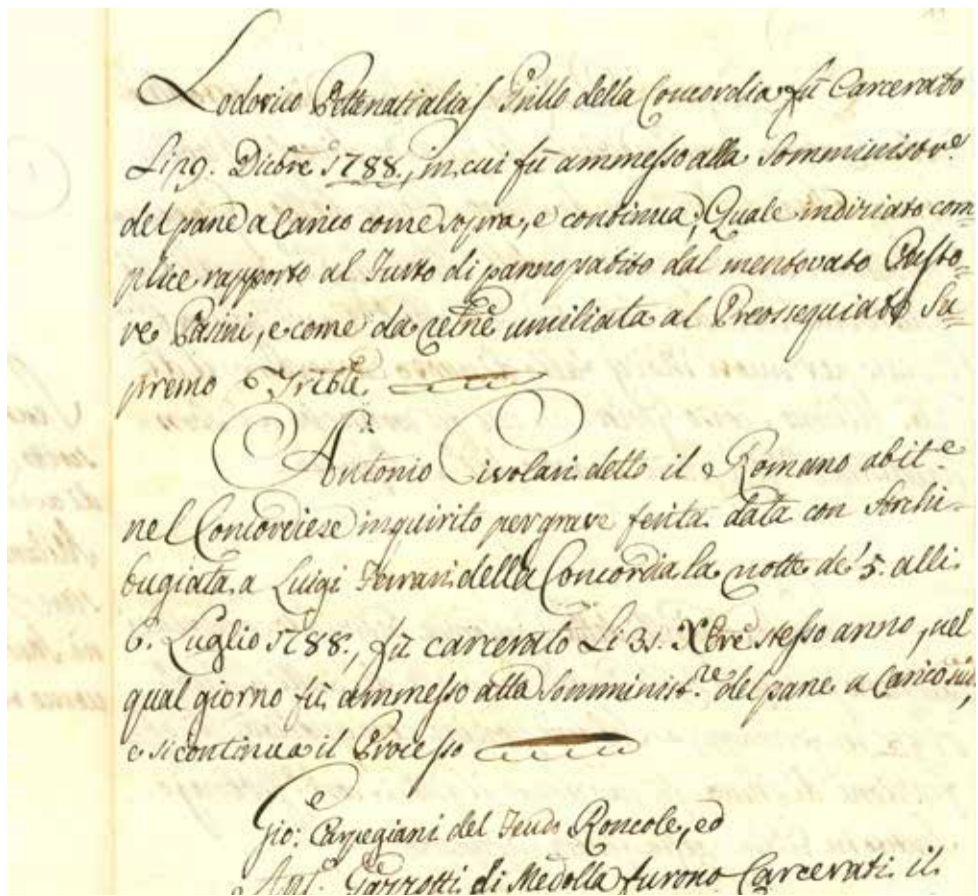 Lodovico Pettenati alias Grillo della Concordia fù Carcerato
Li 19. Dicbre 1788., in cui fù ammesso alla Somministre
del pane a Carico come sopra, e continua; Quale indiziato com=
plice rapporto al Furto di panno patito dal mentovato Pasto=
re Pasini, e come da relne umiliata al Preossequiato Su=
premo Trible.
Antonio Civolani detto il Romano abite
nel Concordiese inquirito per grave ferita data con Archi=
bugiata a Luigi Ferrari della Concordia la notte de' 5. alli
6. Luglio 1788., fù carcerato Li 31. Xbre stesso anno, nel
qual giorno fù ammesso alla Somministre del pane a Carico
e si continua il Processo
Gio: Carpegiani del Feudo Roncole, ed
Ant. Garzotti di Medolla furono Carcerati il